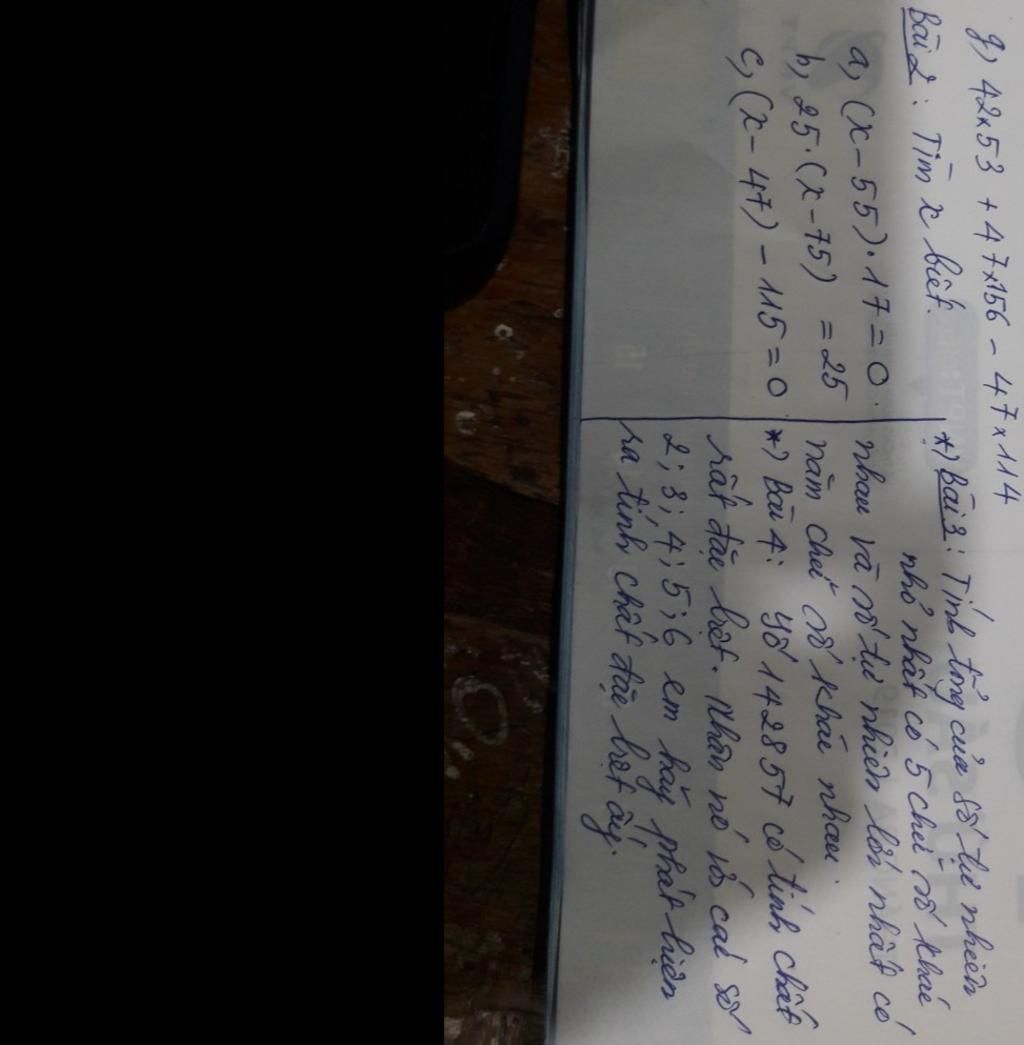 g, 42x53 + 47x156 - 47x114
Bài 2: Tìm x biết.
a, (x-55).17=0.
b, 25.(x-75) = 25
c, (x-47)-115=0
*) Bài 3: Tính tổng của số tự nhiên
nhỏ nhất có 5 chữ số khác
nhau và số tự nhiên lớn nhất có
năm chữ số khác nhau.
*) Bài 4: Số 142857 có tính chất
rất đặc biệt. Nhân nó với các số
2; 3; 4; 5; 6 em hãy phát hiện
ra tính chất đặc biệt ấy.